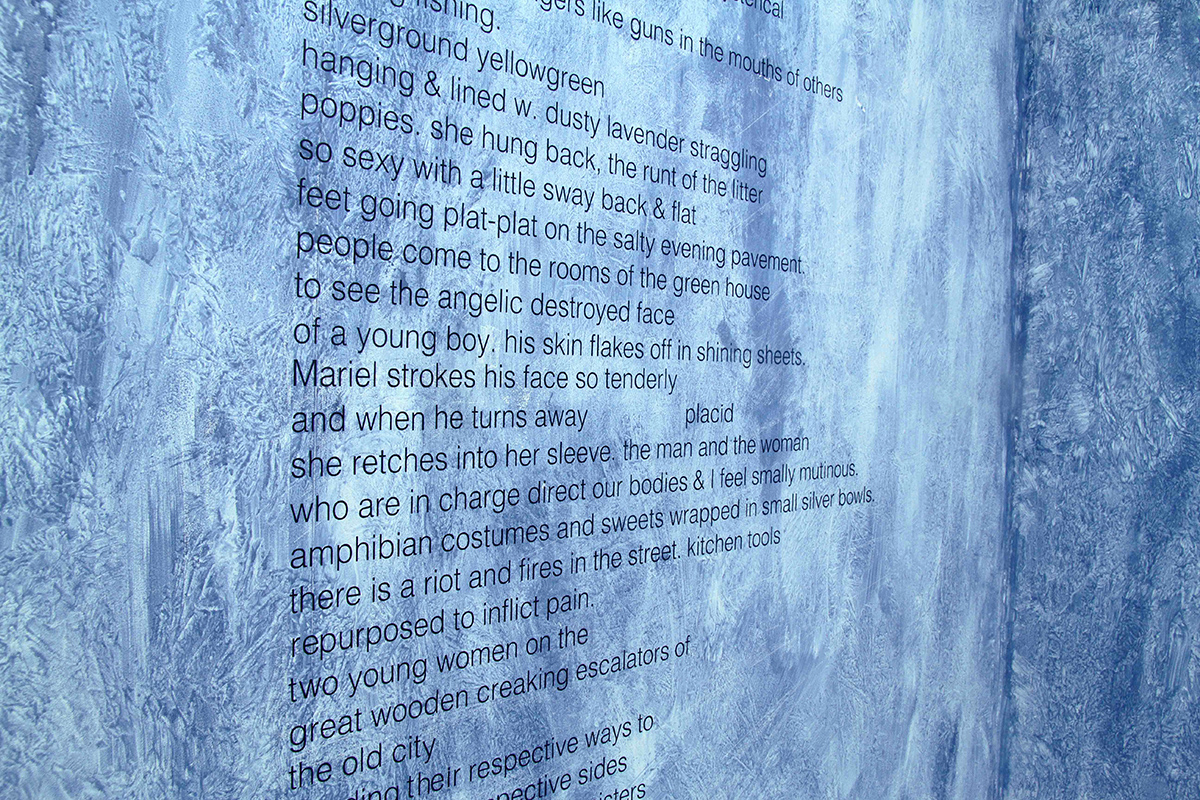 like guns in the mouths of others
fishing.
silverground yellowgreen
hanging & lined w. dusty lavender straggling
poppies. she hung back, the runt of the litter
so sexy with a little sway back & flat
feet going plat-plat on the salty evening pavement.
people come to the rooms of the green house
to see the angelic destroyed face
of a young boy. his skin flakes off in shining sheets.
Mariel strokes his face so tenderly
and when he turns away placid
she retches into her sleeve. the man and the woman
who are in charge direct our bodies & I feel smally mutinous.
amphibian costumes and sweets wrapped in small silver bowls.
there is a riot and fires in the street. kitchen tools
repurposed to inflict pain.
two young women on the
great wooden creaking escalators of
the old city
their respective ways to
sides